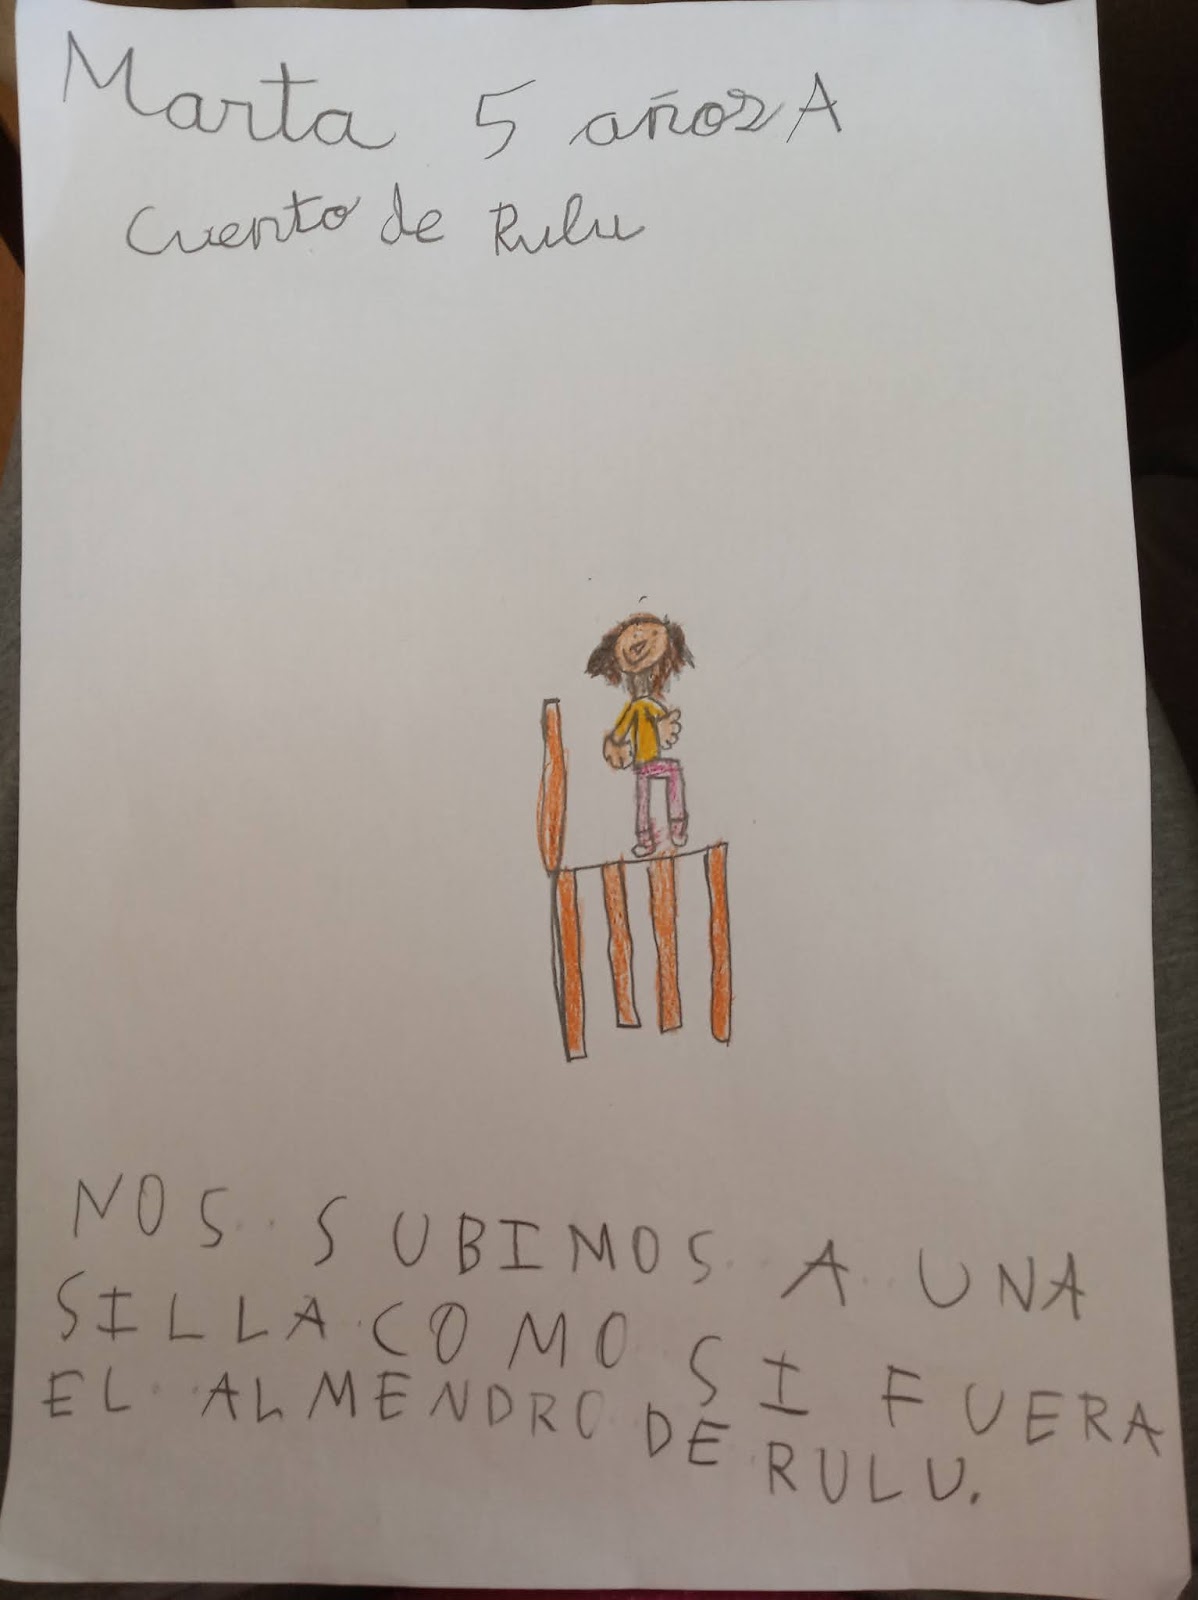 Marta 5 años A
Cuento de Rulu
NOS SUBIMOS A UNA
SILLA COMO SI FUERA
EL ALMENDRO DE RULU.